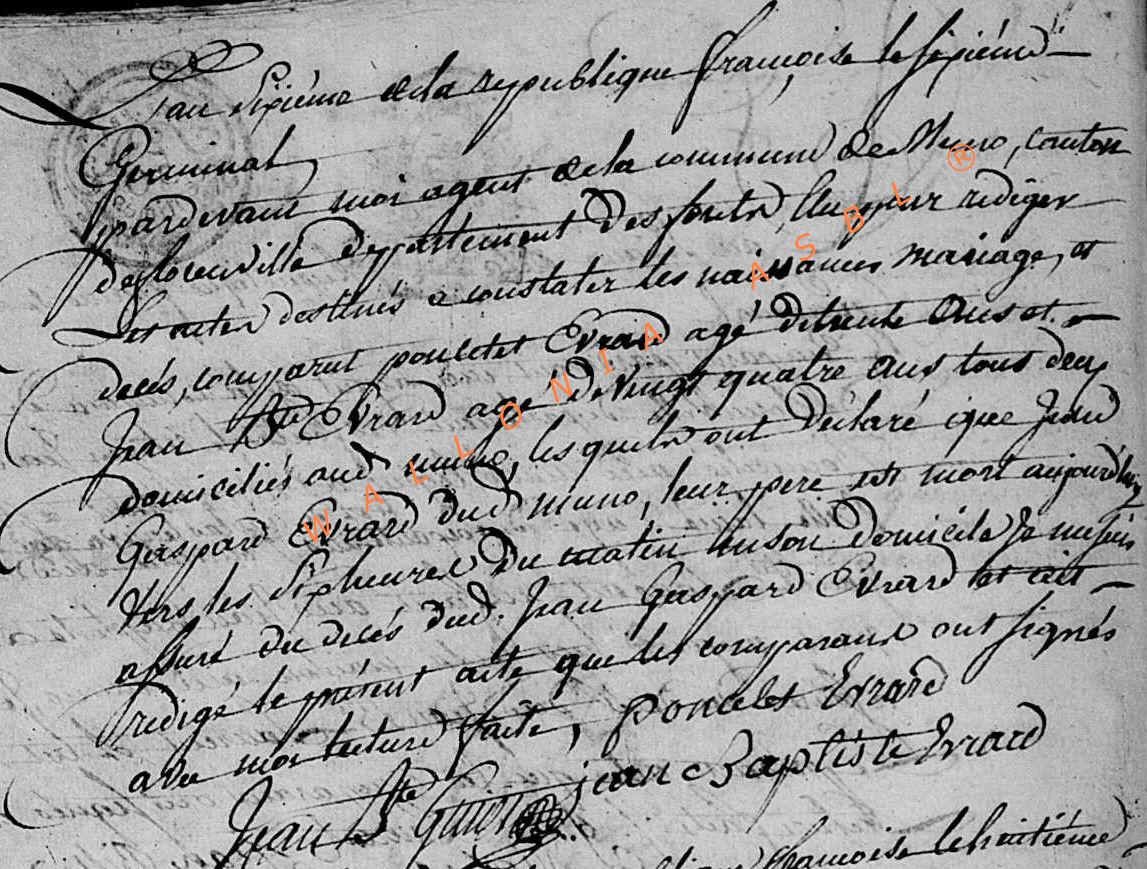 L'an sixiéme de la republique françoise le sixiéme
Germinal
pardevant moi agent de la commune de Muno, conton
deflorenville departement des forets Elu pour rediger
Les actes destinés a constater les naissances mariage, et
decés, comparut poncelet Evrard agé detrente Ans et
Jean Bte Evrard agé de Vingt quatre Ans tous deux
domiciliés aud muno, lesquels ont déclaré que Jean
Gaspard Evrard dud muno, leur pere est mort aujourdhuy
Vers les six heures Du matin enson Domicile Je me suis
assuré du decés dud. Jean Gaspard Evrard et ait
redigé le présent acte que les comparans ont signés
avec moi lecture faite, poncelet Evrard
jean Baptiste Evrard
Jean Bte
françoise le huitiéme
WALLONIA ASBL ®